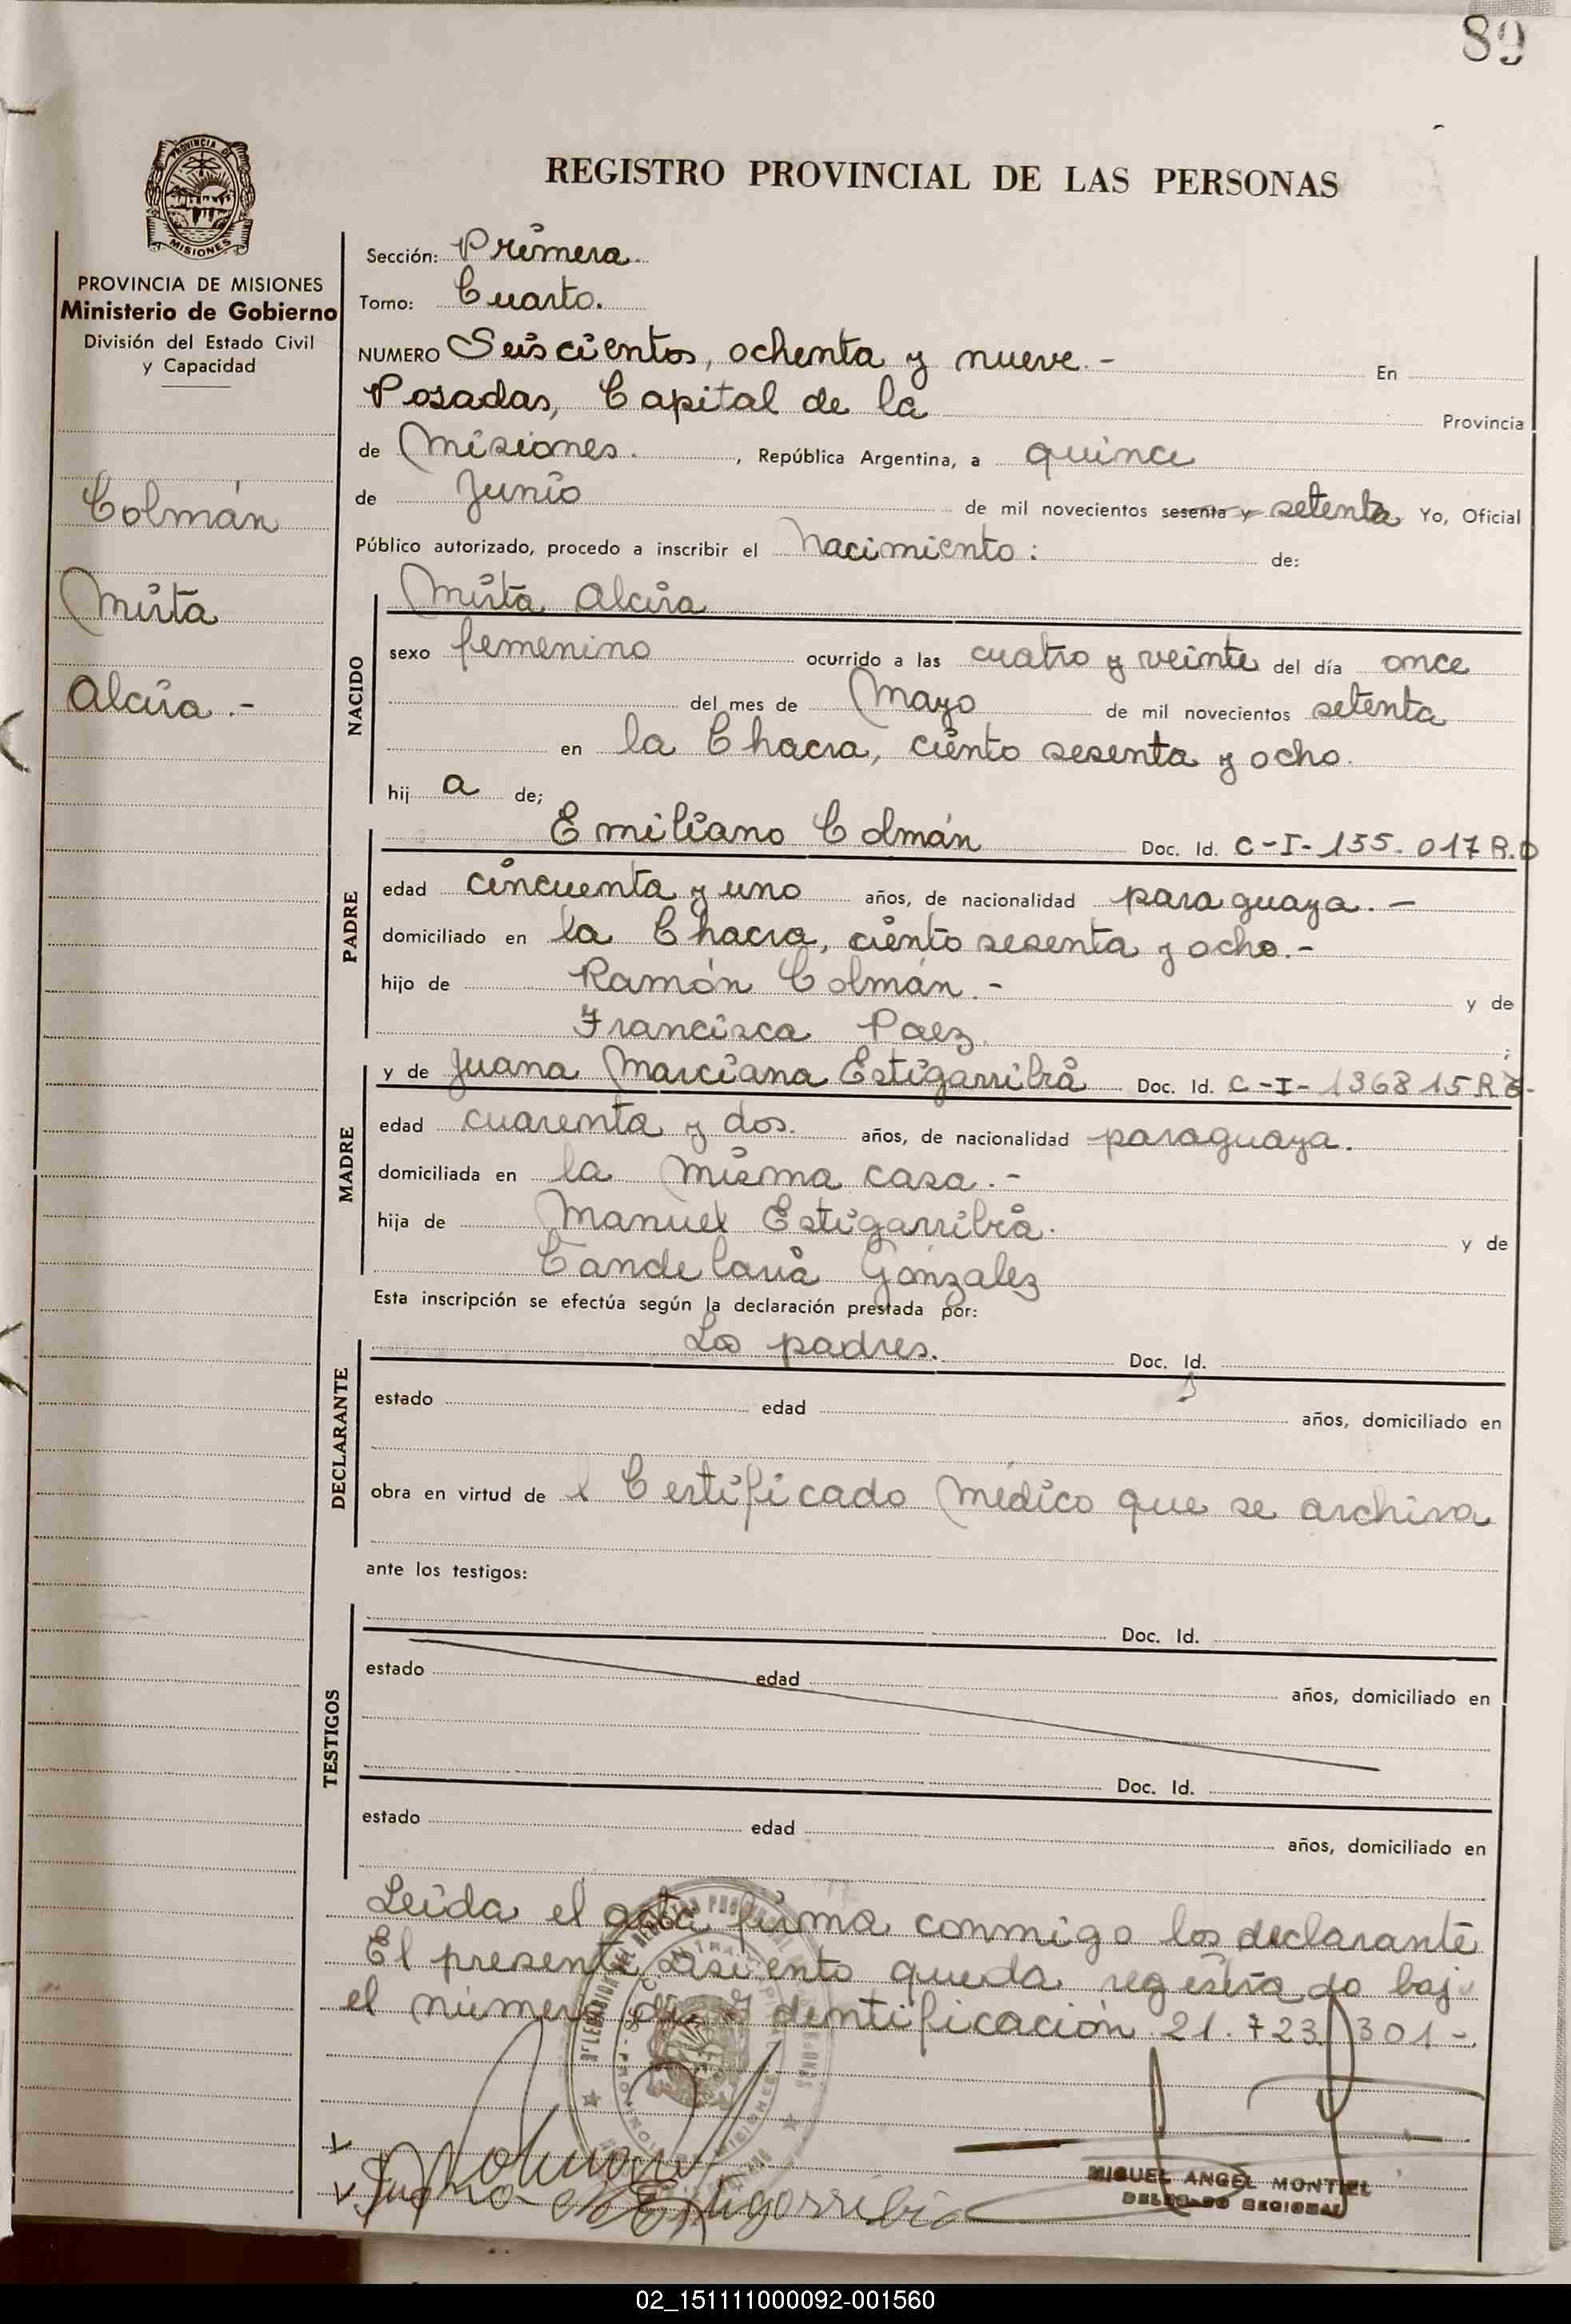 89
PROVINCIA DE
MISIONES
REGISTRO PROVINCIAL DE LAS PERSONAS
PROVINCIA DE MISIONES
Ministerio de Gobierno
División del Estado Civil
y Capacidad
Colmán
Mirta
Alcira.-
Sección: Primera.
Tomo: Cuarto.
NUMERO Seiscientos, ochenta y nueve.- En
Posadas, Capital de la Provincia
de Misiones. , República Argentina, a quince
de Junio de mil novecientos sesenta y setenta Yo, Oficial
Público autorizado, procedo a inscribir el Nacimiento: de:
Mirta Alcira
NACIDO
sexo femenino ocurrido a las cuatro y veinte del día once
del mes de Mayo de mil novecientos setenta
en la Chacra, ciento sesenta y ocho.
hij a de;
Emiliano Colmán Doc. Id. C-I-155.017 R.P
PADRE
edad cincuenta y uno años, de nacionalidad paraguaya.-
domiciliado en la Chacra, ciento sesenta y ocho.-
hijo de Ramón Colmán.- y de
Francisca Paez. ;
y de Juana Marciana Estigarribia Doc. Id. C-I-136815 R
MADRE
edad cuarenta y dos. años, de nacionalidad paraguaya.
domiciliada en la misma casa.-
hija de Manuel Estigarribia. y de
Candelaria Gonzalez
Esta inscripción se efectúa según la declaración prestada por:
Los padres. Doc. Id.
DECLARANTE
estado edad años, domiciliado en
obra en virtud de l Certificado Médico que se archiva
ante los testigos:
Doc. Id.
TESTIGOS
estado edad años, domiciliado en
Doc. Id.
estado edad años, domiciliado en
Leida el acta firma conmigo los declarante
El presente asiento queda registrado bajo
el número de Identificación 21.723.301-
Colman
Juana Estigarribia
MIGUEL ANGEL MONTIEL
DELEGADO REGIONAL
02_151111000092-001560